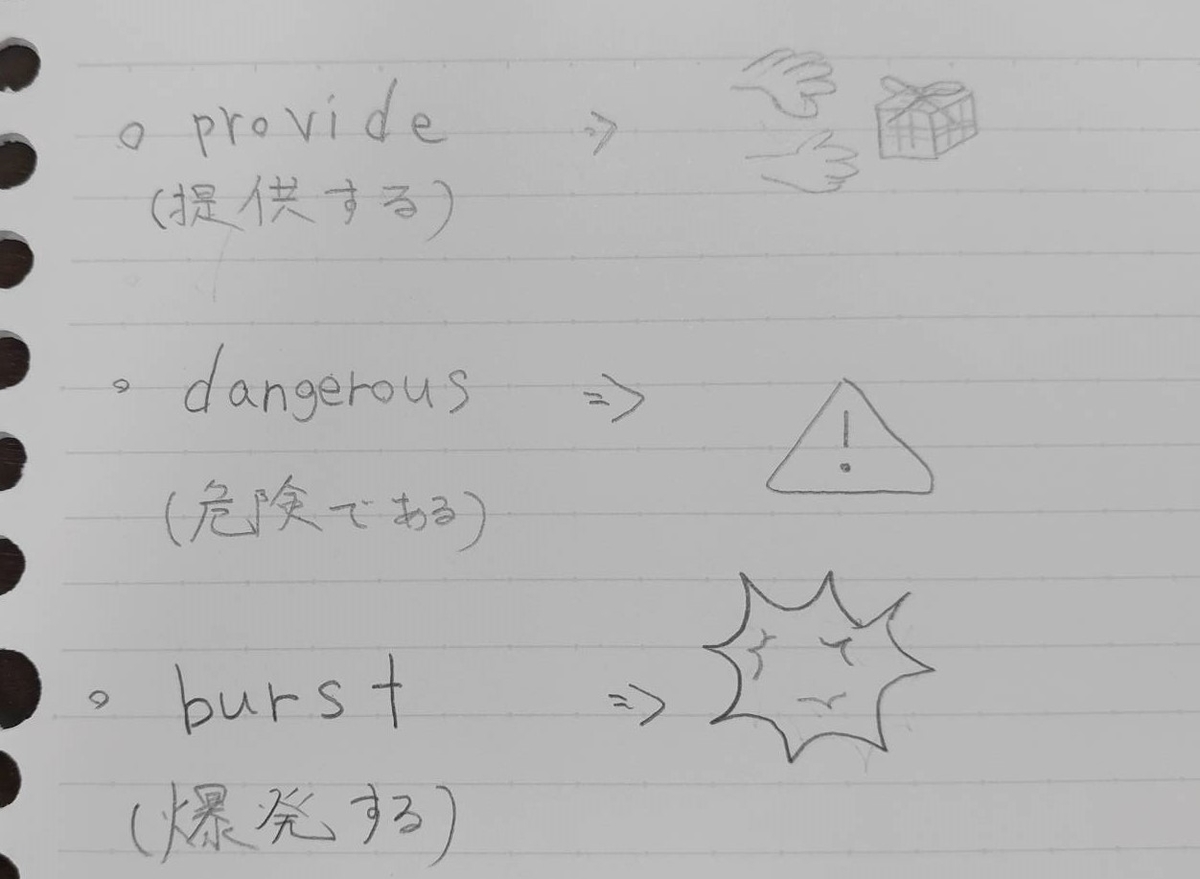 ○ provide ⇒
(提供する)
○ dangerous ⇒ !
(危険である)
○ burst ⇒
(爆発する)